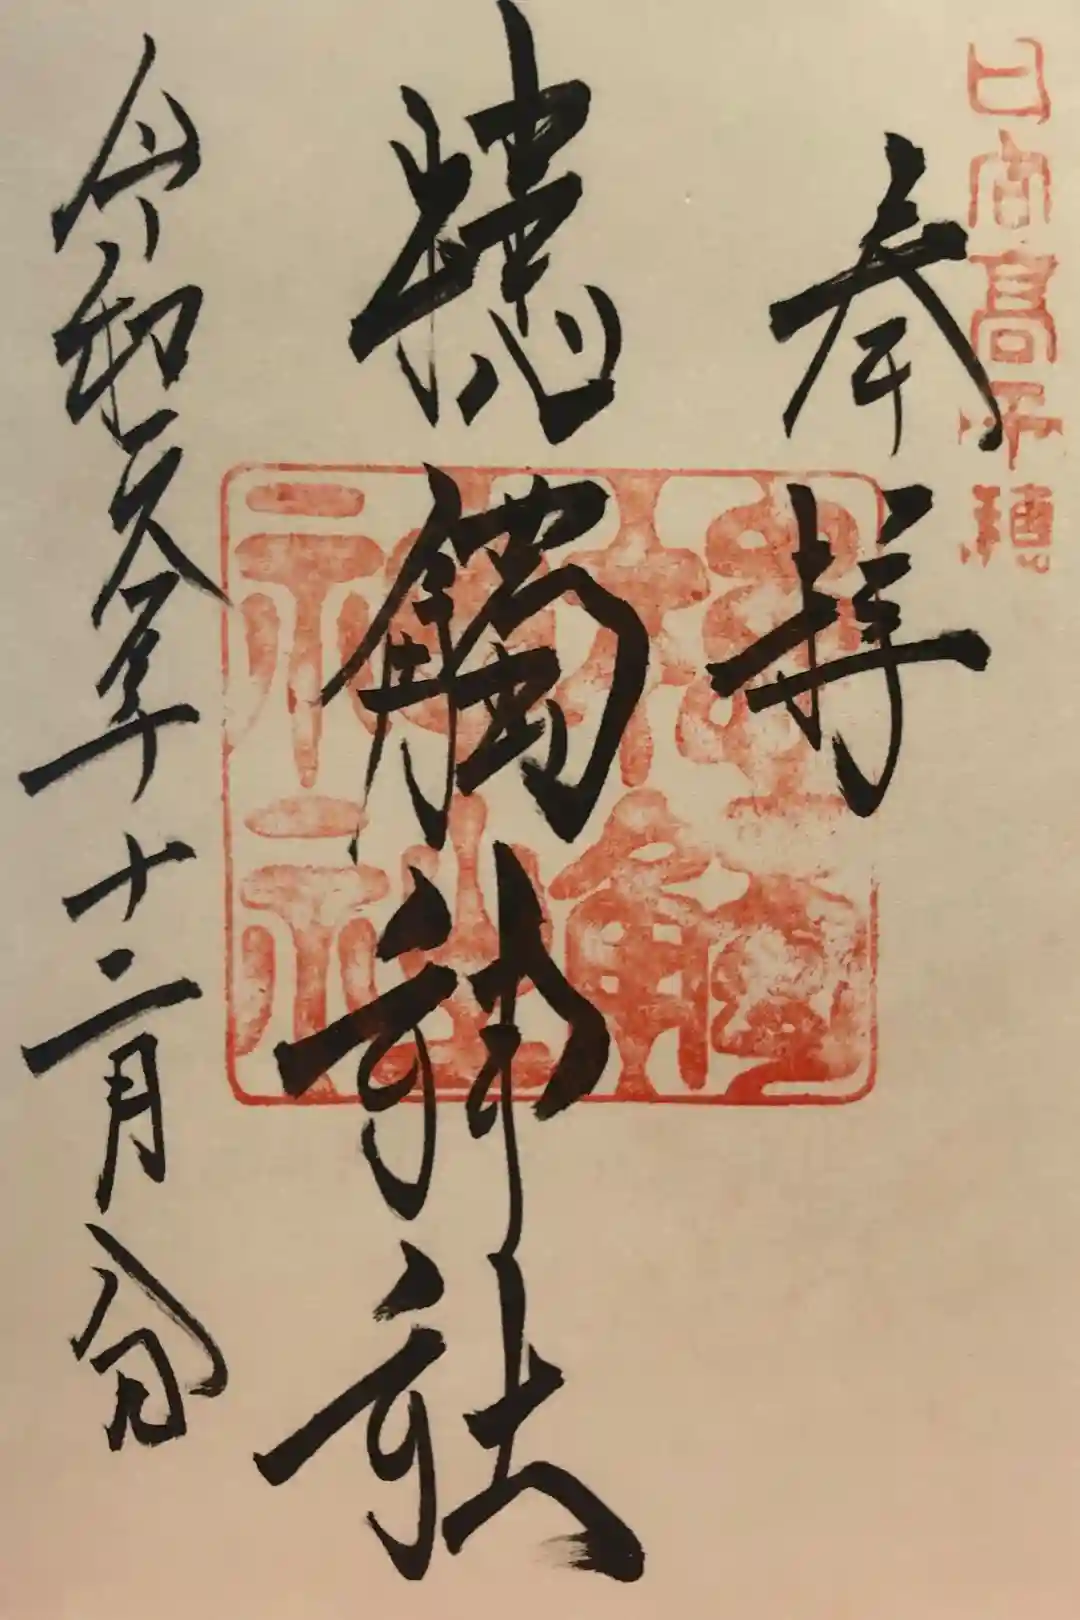 日向高千穂
奉拝
槵觸神社
槵觸神社
令和六年十二月八日